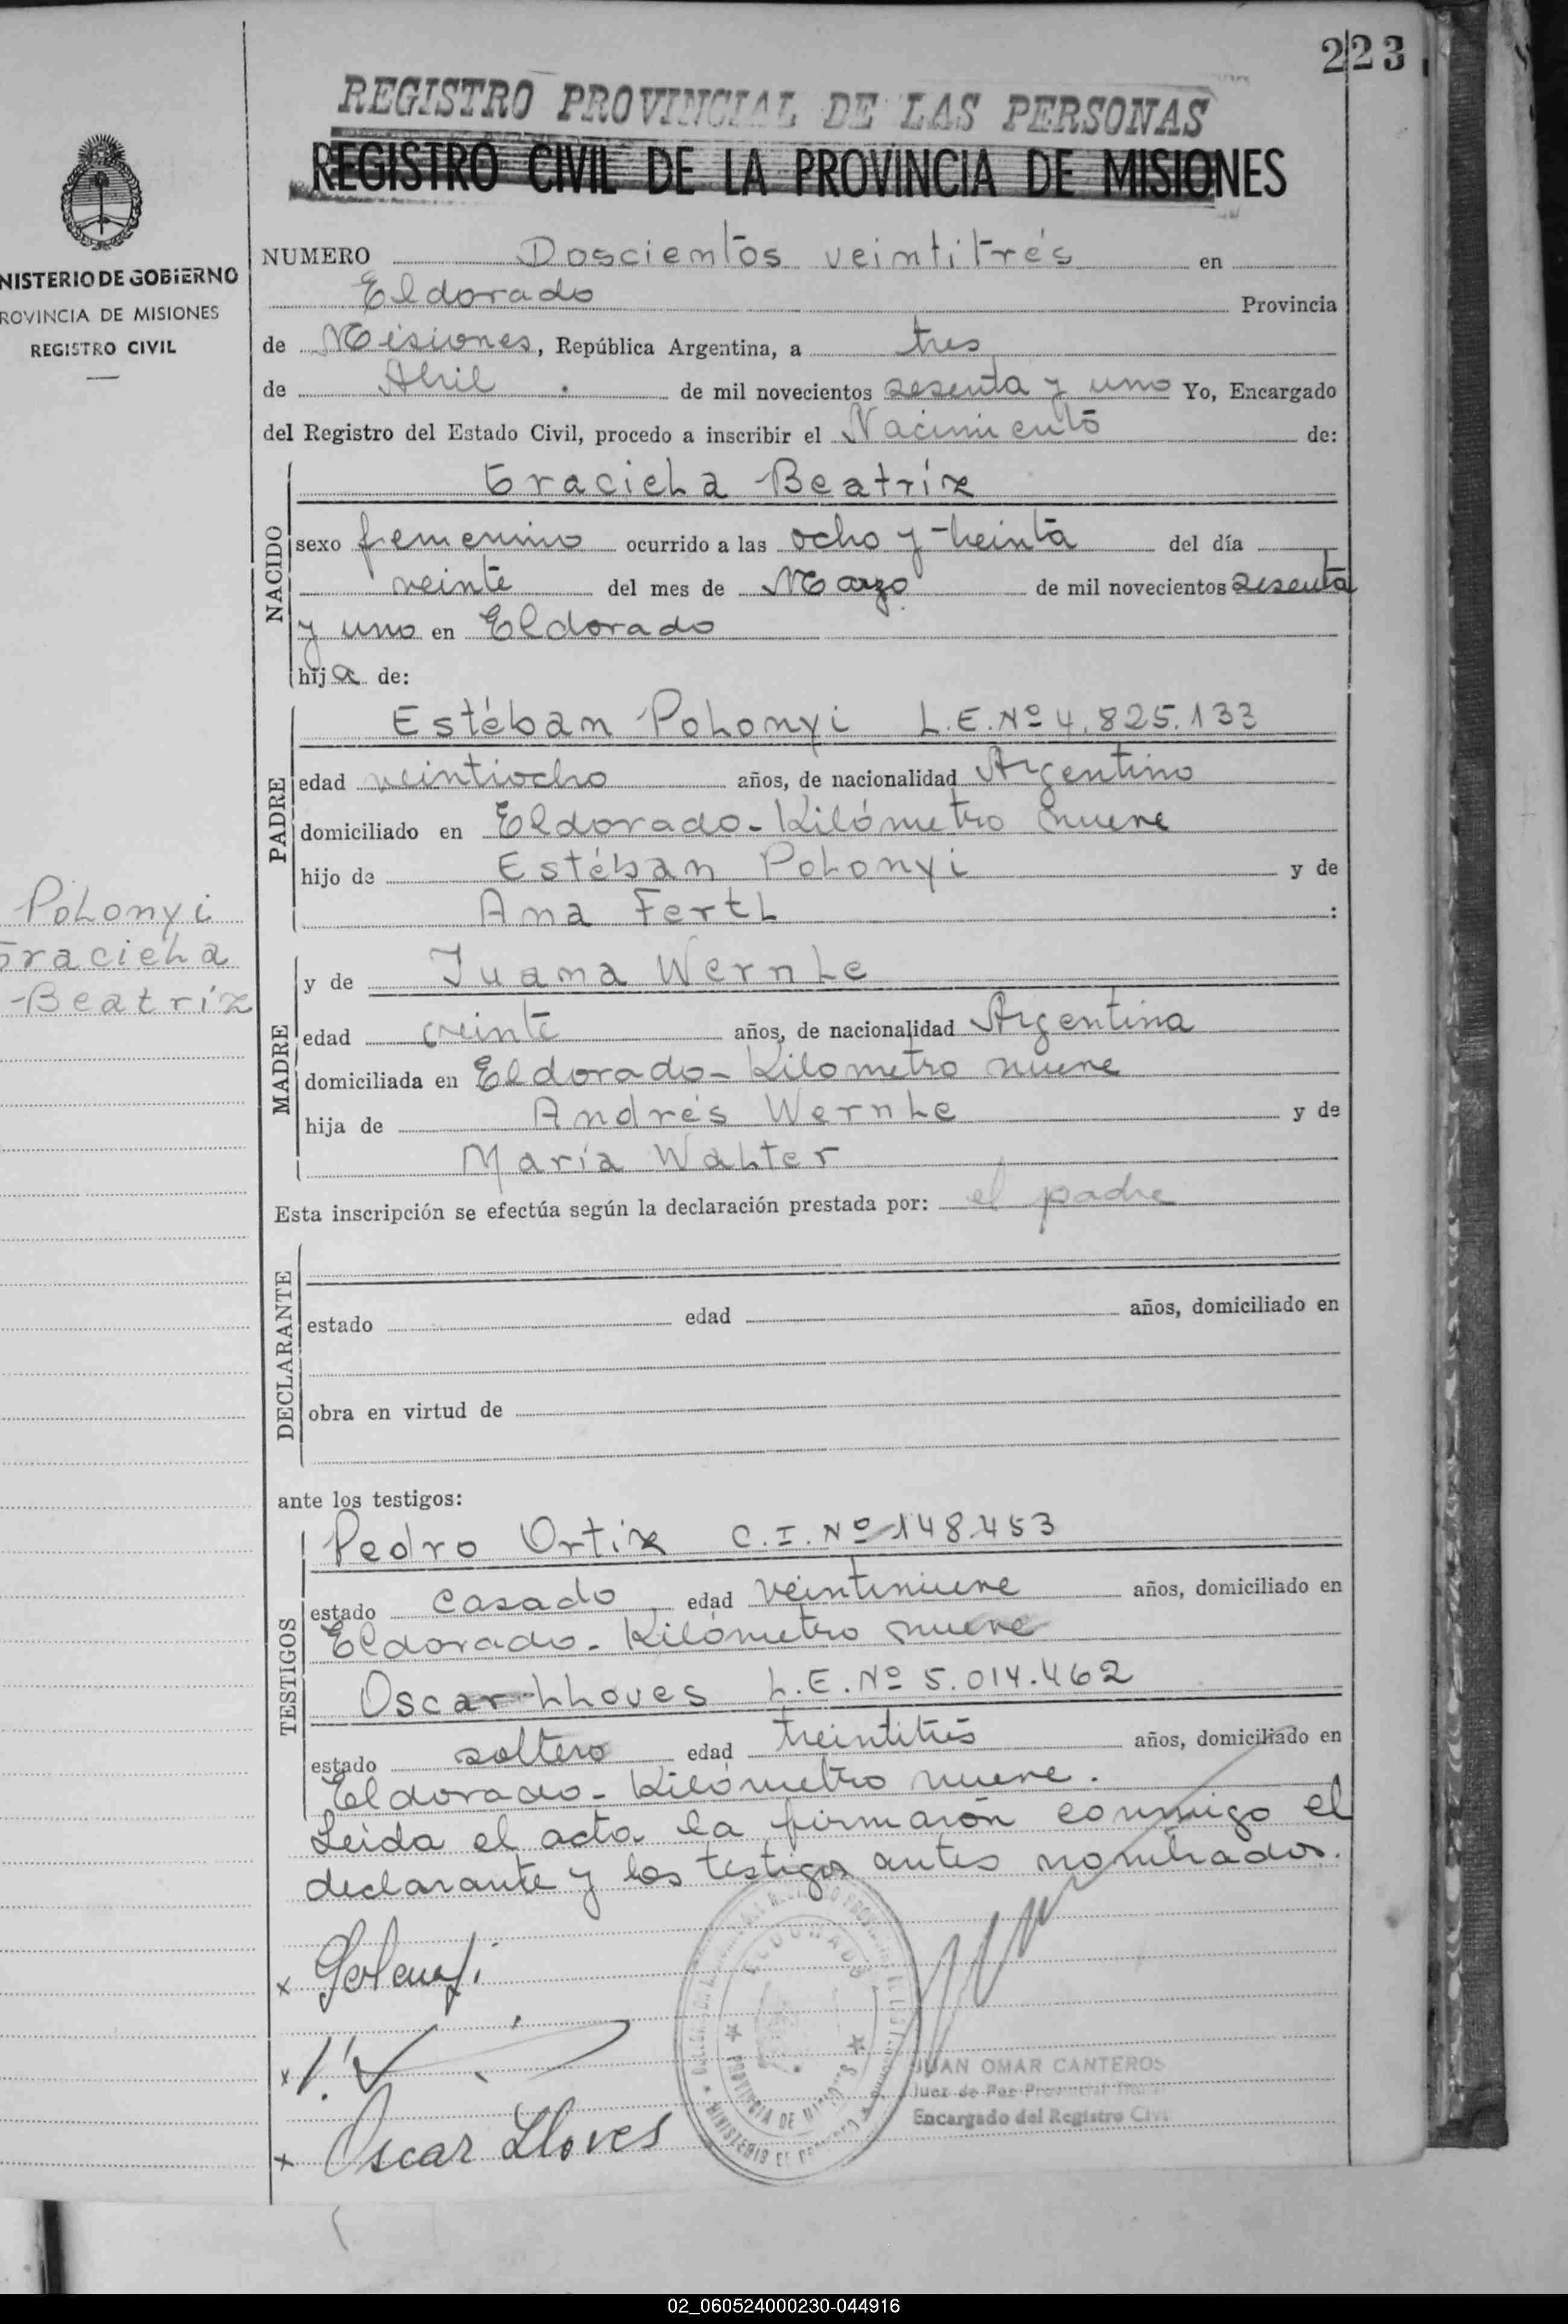 223
REGISTRO PROVINCIAL DE LAS PERSONAS
REGISTRO CIVIL DE LA PROVINCIA DE MISIONES
NISTERIO DE GOBIERNO
ROVINCIA DE MISIONES
REGISTRO CIVIL
NUMERO Doscientos veintitrés en
Eldorado Provincia
de Misiones, República Argentina, a tres
de Abril de mil novecientos sesenta y uno Yo, Encargado
del Registro del Estado Civil, procedo a inscribir el Nacimiento de:
NACIDO
Graciela Beatríz
sexo femenino ocurrido a las ocho y treinta del día
veinte del mes de Marzo de mil novecientos sesenta
y uno en Eldorado
hija de:
PADRE
Estéban Polonyi L.E.Nº 4.825.133
edad veintiocho años, de nacionalidad Argentino
domiciliado en Eldorado-Kilómetro nueve
hijo de Estéban Polonyi y de
Ana Fertl :
Polonyi
Graciela
Beatríz
MADRE
y de Juana Wernle
edad veinte años, de nacionalidad Argentina
domiciliada en Eldorado-Kilometro nueve
hija de Andrés Wernle y de
María Walter
Esta inscripción se efectúa según la declaración prestada por: el padre
DECLARANTE
estado edad años, domiciliado en
obra en virtud de
ante los testigos:
TESTIGOS
Pedro Ortiz C.I.Nº 148.453
estado casado edad veintinueve años, domiciliado en
Eldorado-Kilómetro nueve
Oscar Lloves L.E.Nº 5.014.462
estado soltero edad treintitrés años, domiciliado en
Eldorado-Kilómetro nueve.
Leída el acta la firmarón conmigo el
declarante y los testigos antes nombrados.
x Polonyi
x
x Oscar Lloves
ELDORADO
PROVINCIA DE MISIONES
JUAN OMAR CANTEROS
Juez de Paz Provincial
Encargado del Registro Civil
02_060524000230-044916